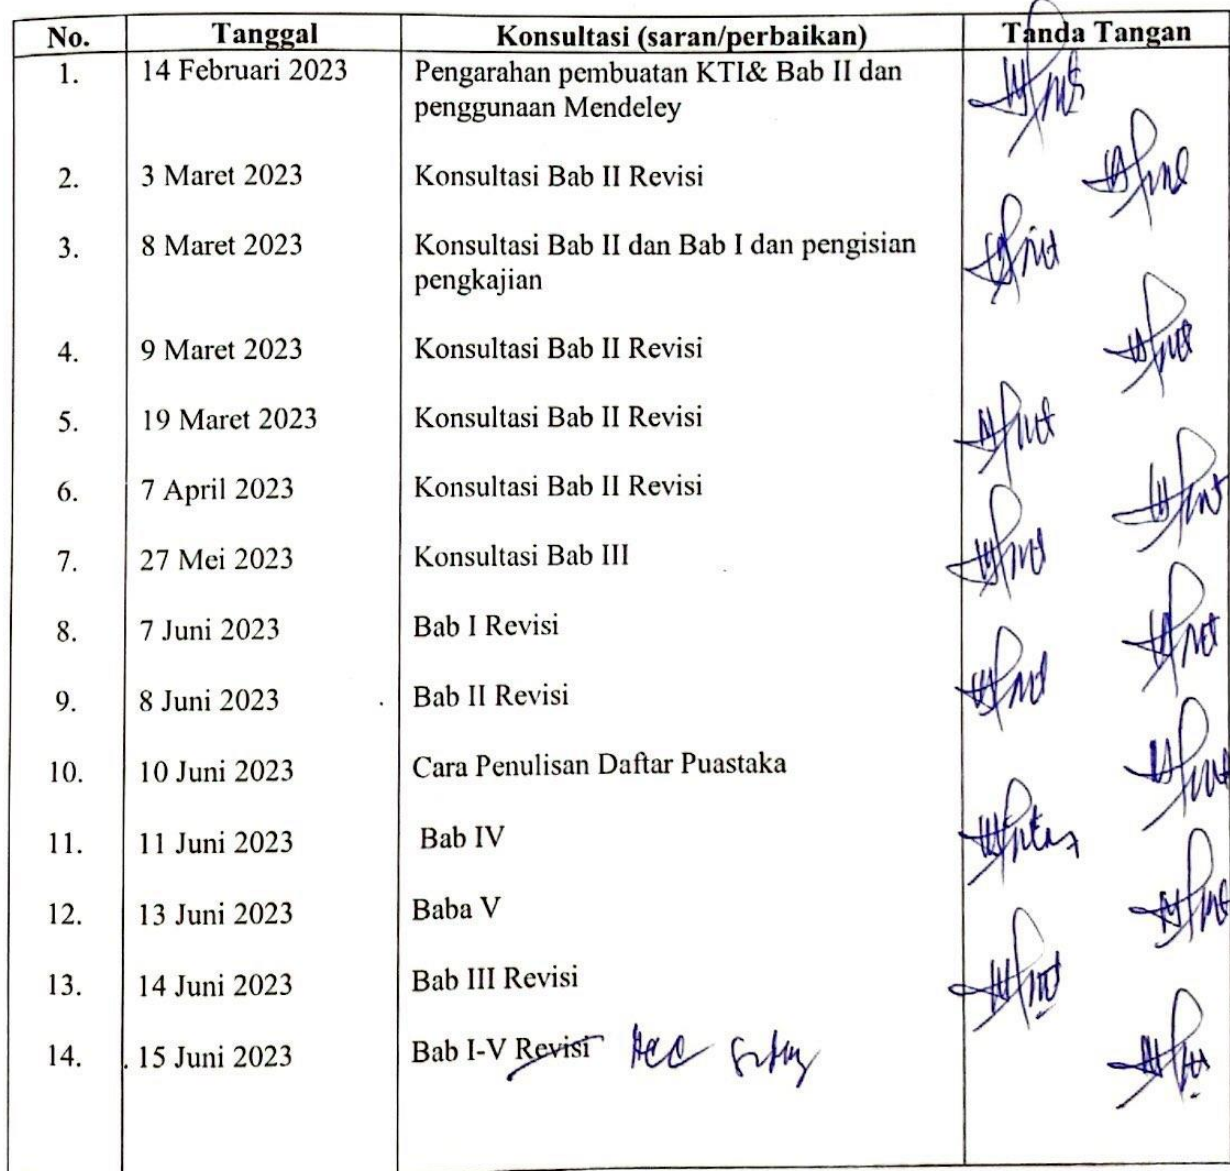 No. Tanggal Konsultasi (saran/perbaikan) Tanda Tangan
1. 14 Februari 2023 Pengarahan pembuatan KTI& Bab II dan
penggunaan Mendeley
2. 3 Maret 2023 Konsultasi Bab II Revisi
3. 8 Maret 2023 Konsultasi Bab II dan Bab I dan pengisian
pengkajian
4. 9 Maret 2023 Konsultasi Bab II Revisi
5. 19 Maret 2023 Konsultasi Bab II Revisi
6. 7 April 2023 Konsultasi Bab II Revisi
7. 27 Mei 2023 Konsultasi Bab III
8. 7 Juni 2023 Bab I Revisi
9. 8 Juni 2023 Bab II Revisi
10. 10 Juni 2023 Cara Penulisan Daftar Puastaka
11. 11 Juni 2023 Bab IV
12. 13 Juni 2023 Baba V
13. 14 Juni 2023 Bab III Revisi
14. 15 Juni 2023 Bab I-V Revisi Acc